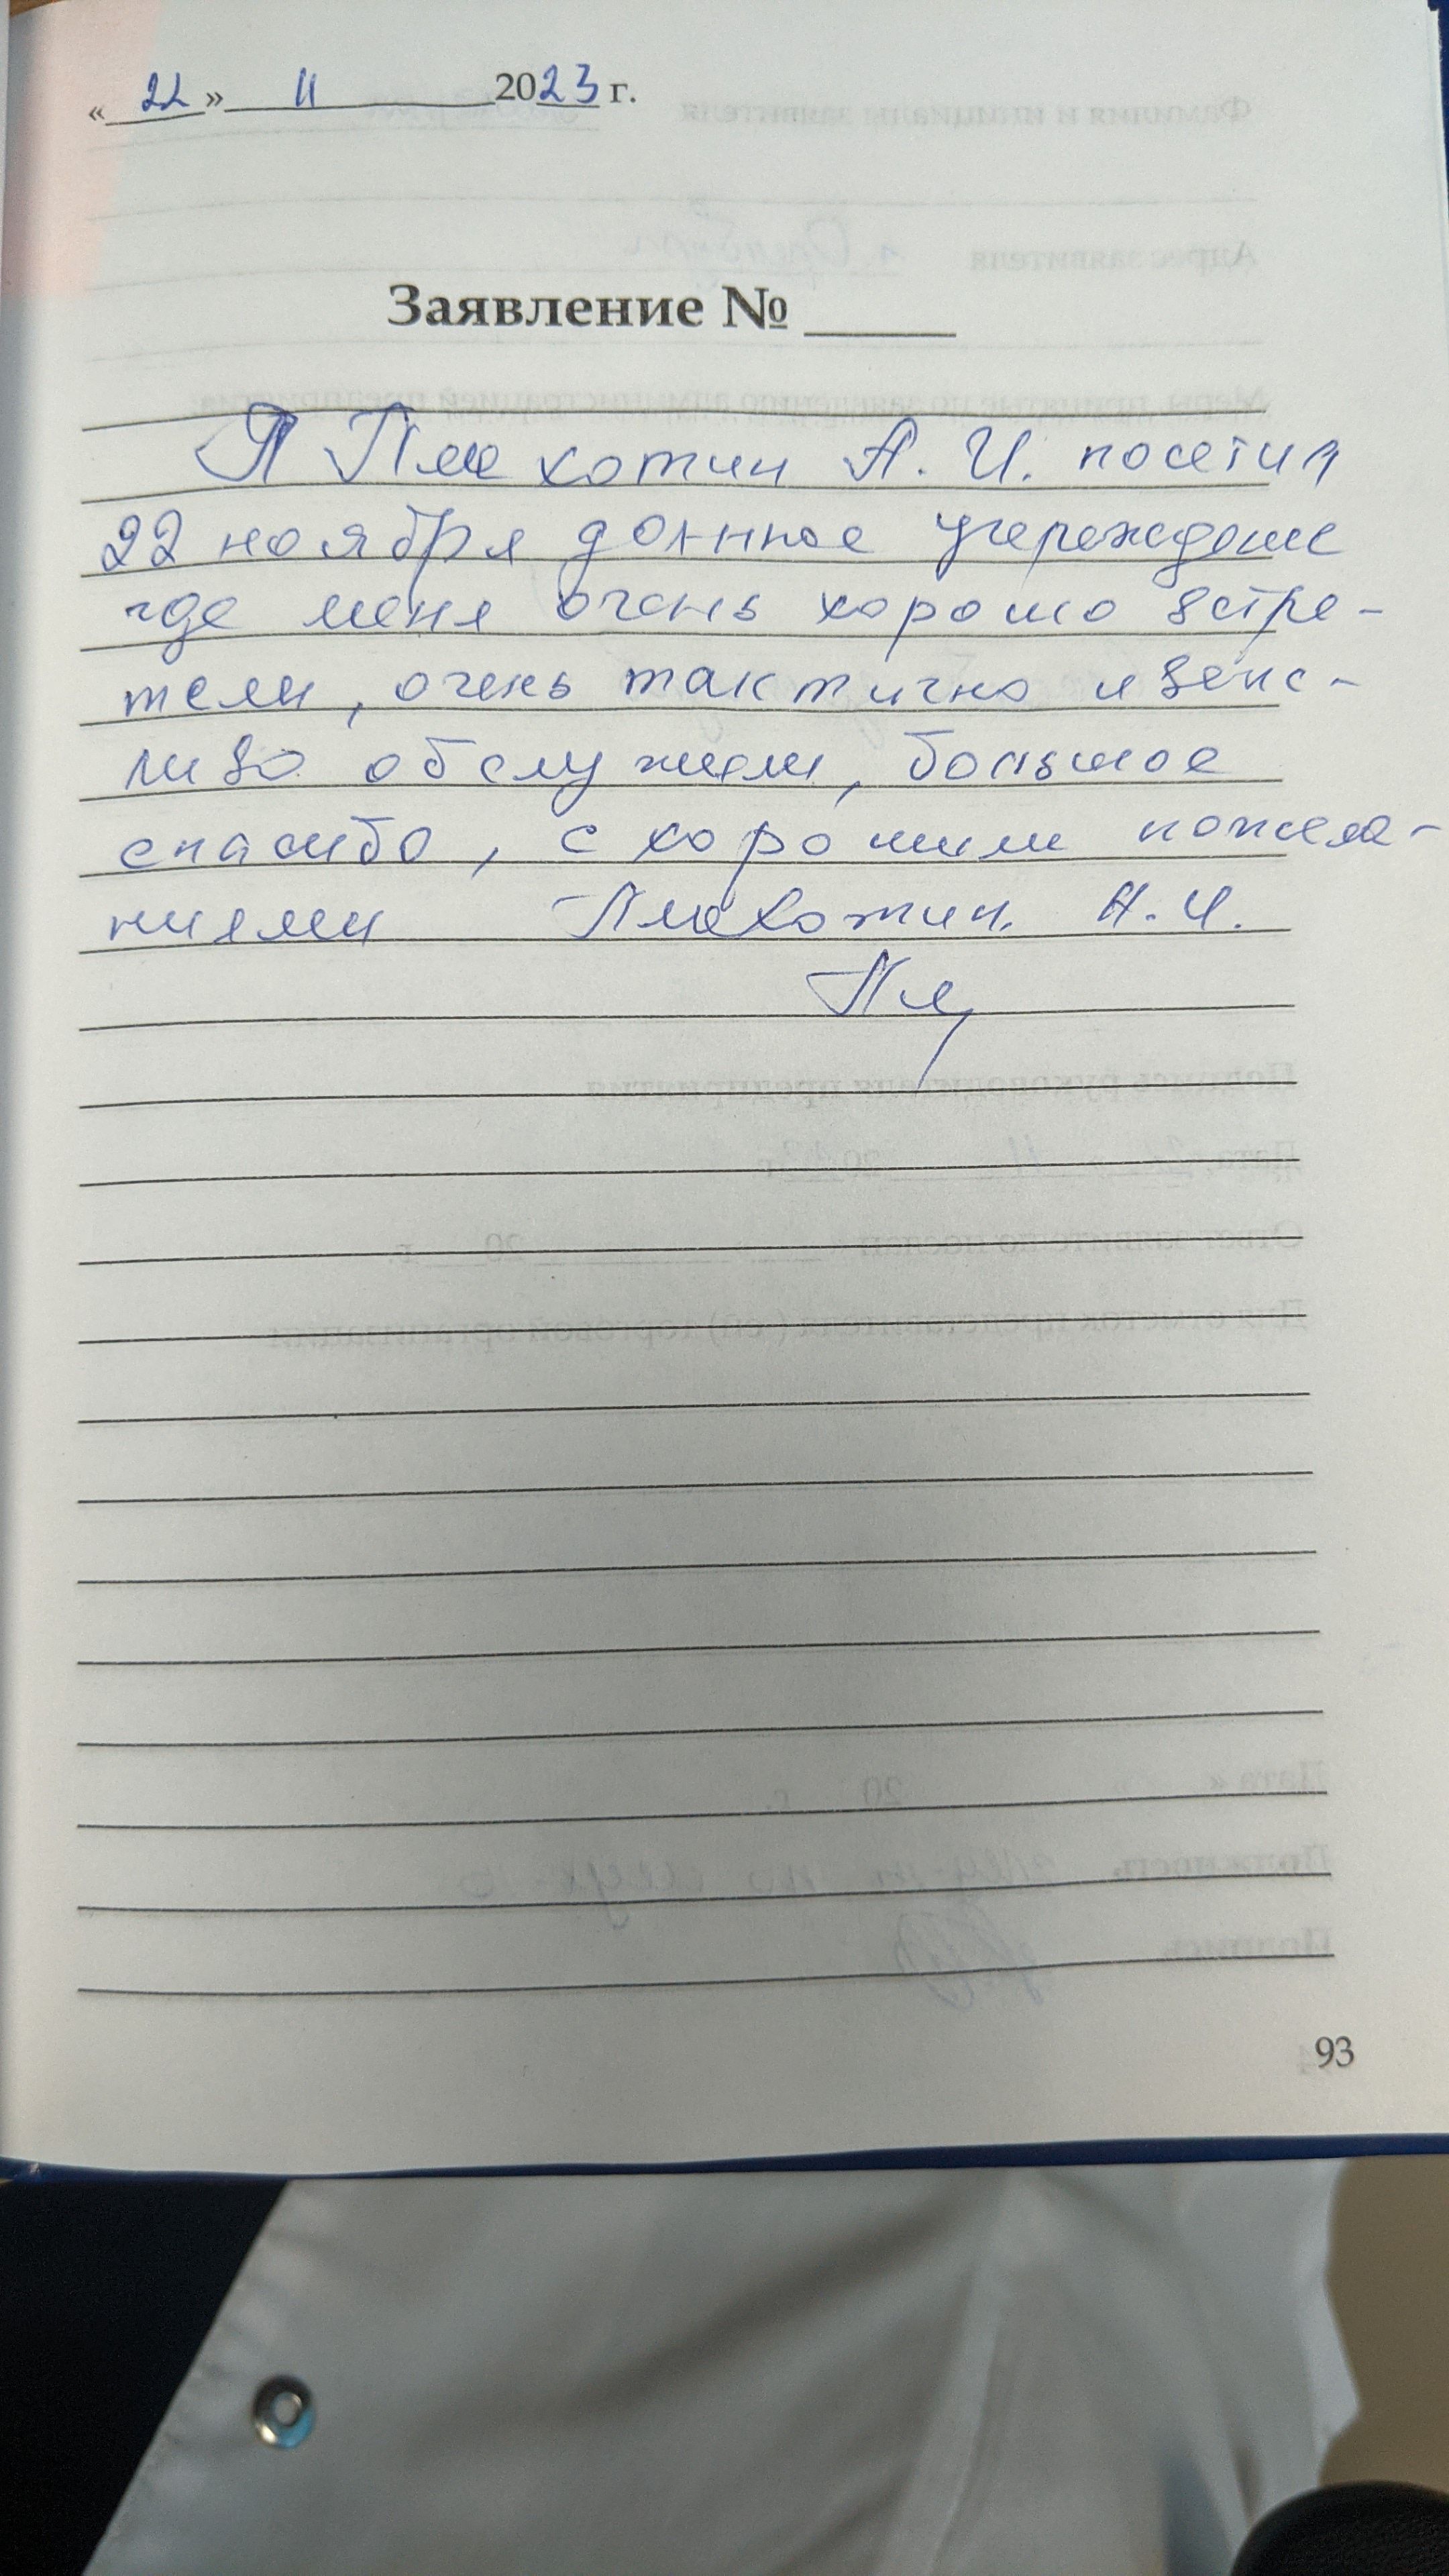 « 22 » 11 2023 г.
Заявление № ____
Я Плохотин А. И. посетил
22 ноября данное учереждение
где меня очень хорошо встре-
тели, очень тактично и вежс-
ливо обслужили, большое
спасибо, с хорошими пожела-
ниями Плохотин. А. И.
93